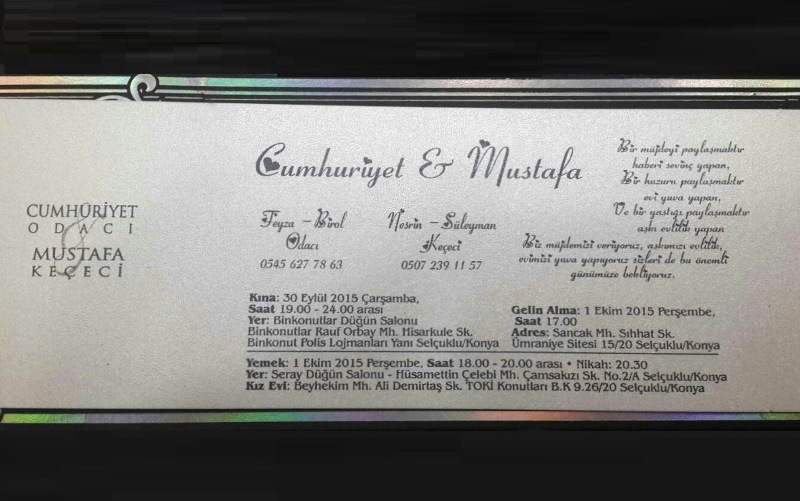 CUMHURİYET
ODACI
&
MUSTAFA
KEÇECİ
Cumhuriyet & Mustafa
Feyza - Birol
Odacı
0545 627 78 63
Nesrin - Süleyman
Keçeci
0507 239 11 57
Bir müjdeyi paylaşmaktır
haberi sevinç yapan,
Bir huzuru paylaşmaktır
evi yuva yapan,
Ve bir yastığı paylaşmaktır
aşkı evlilik yapan
Biz müjdemizi veriyoruz, aşkımızı evlilik,
evimizi yuva yapıyoruz sizleri de bu önemli
günümüze bekliyoruz.
Kına: 30 Eylül 2015 Çarşamba,
Saat 19.00 - 24.00 arası
Yer: Binkonutlar Düğün Salonu
Binkonutlar Rauf Orbay Mh. Hisarkule Sk.
Binkonut Polis Lojmanları Yanı Selçuklu/Konya
Gelin Alma: 1 Ekim 2015 Perşembe,
Saat 17.00
Adres: Sancak Mh. Sıhhat Sk.
Ümraniye Sitesi 15/20 Selçuklu/Konya
Yemek: 1 Ekim 2015 Perşembe, Saat 18.00 - 20.00 arası • Nikah: 20.30
Yer: Seray Düğün Salonu - Hüsamettin Çelebi Mh. Çamsakızı Sk. No.2/A Selçuklu/Konya
Kız Evi: Beyhekim Mh. Ali Demirtaş Sk. TOKİ Konutları B.K 9.26/20 Selçuklu/Konya